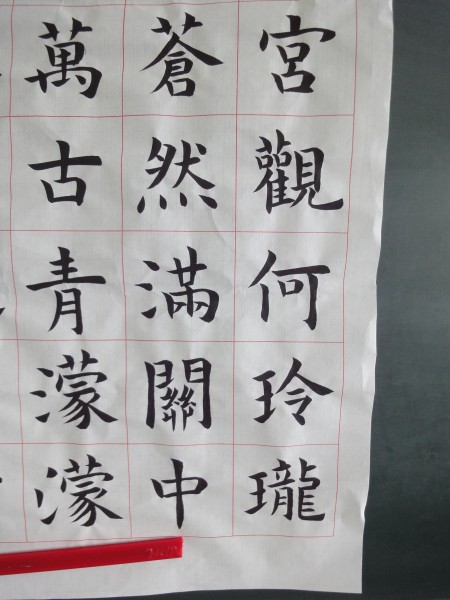 宮觀何玲瓏
蒼然滿關中
萬古青濛濛